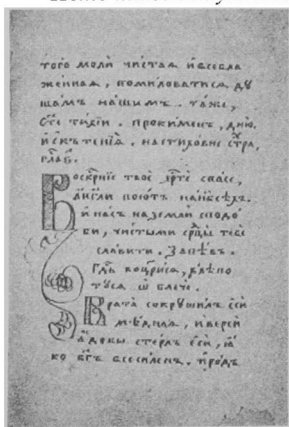 того моли чистаѧ и всебла
женнаѧ, помиловатисѧ ду
шамъ нашимъ. таже,
Свѣте тихїи. прокименъ, дню.
на стиховне
Воскрⷭ҇нїе твое хрⷭ҇те спасе,
аг҃гли поютъ на нб҃сѣхъ.
и насъ на земли сподо
би, чистыми срⷣцы тебе
славити. Запѣвъ.
Гдⷭ҇ь воцр҃исѧ, в лѣпо
тусѧ ѡблече.
Врата сокрꙋшилъ еси
мѣднаѧ, и вереи
адовы стерлъ еси, ꙗ
ко бг҃ъ всесиленъ.